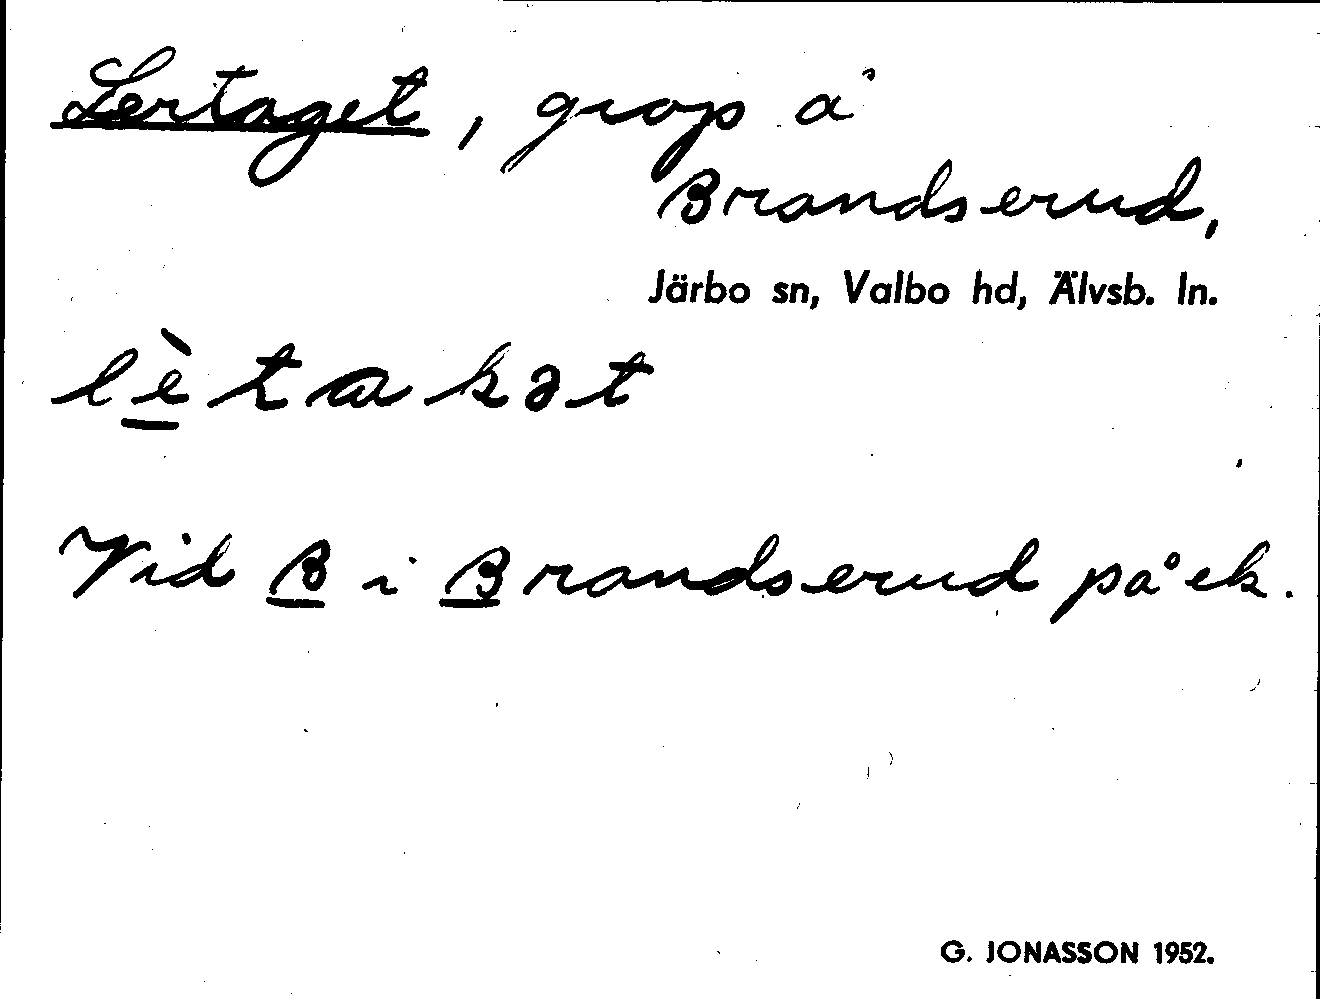 Lertaget, grop å
Brandserud,
Järbo sn, Valbo hd, Älvsb. ln.
lètakət
Vid B i Brandserud på ek.
G. JONASSON 1952.